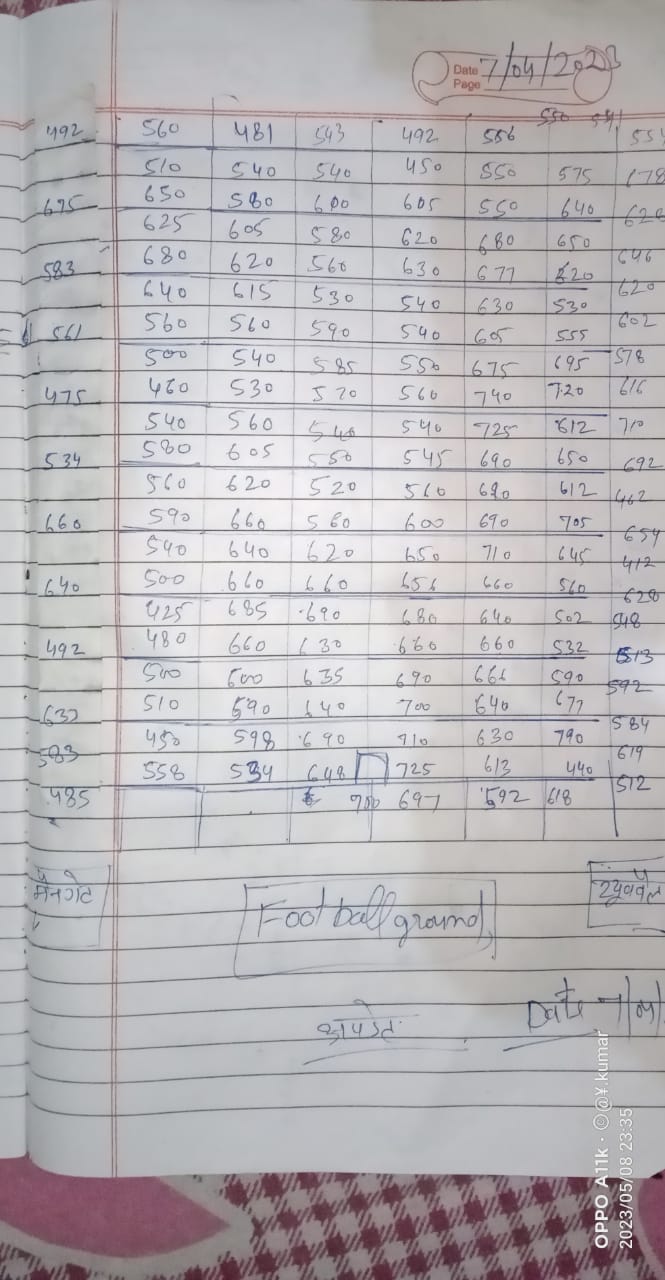 Date 7/04/2023
Page
550 541
492 560 481 543 492 556 551
510 540 540 450 550 575 678
695 650 580 600 605 550 640 620
625 605 580 620 680 650
583 680 620 560 630 677 620 646
640 615 530 540 630 530 620
561 560 560 590 540 605 555 602
500 540 585 550 675 695 578
475 460 530 520 560 740 720 616
540 560 540 540 725 612 710
534 580 605 550 545 690 650 692
560 620 520 510 690 612 462
660 590 660 560 600 690 705 654
540 640 620 650 710 645 412
640 500 660 660 656 660 560 628
425 685 690 680 640 502 548
492 480 660 630 660 660 532 513
500 600 635 690 666 590 592
632 510 590 640 700 640 677 584
583 450 598 690 710 630 790 619
558 534 648 725 613 440 512
485 700 697 592 618
मैनगेट Football ground, ट्यूबवेल
Date 7/04/
OPPO A11k · ©@¥.kumar
2023/05/08 23:35